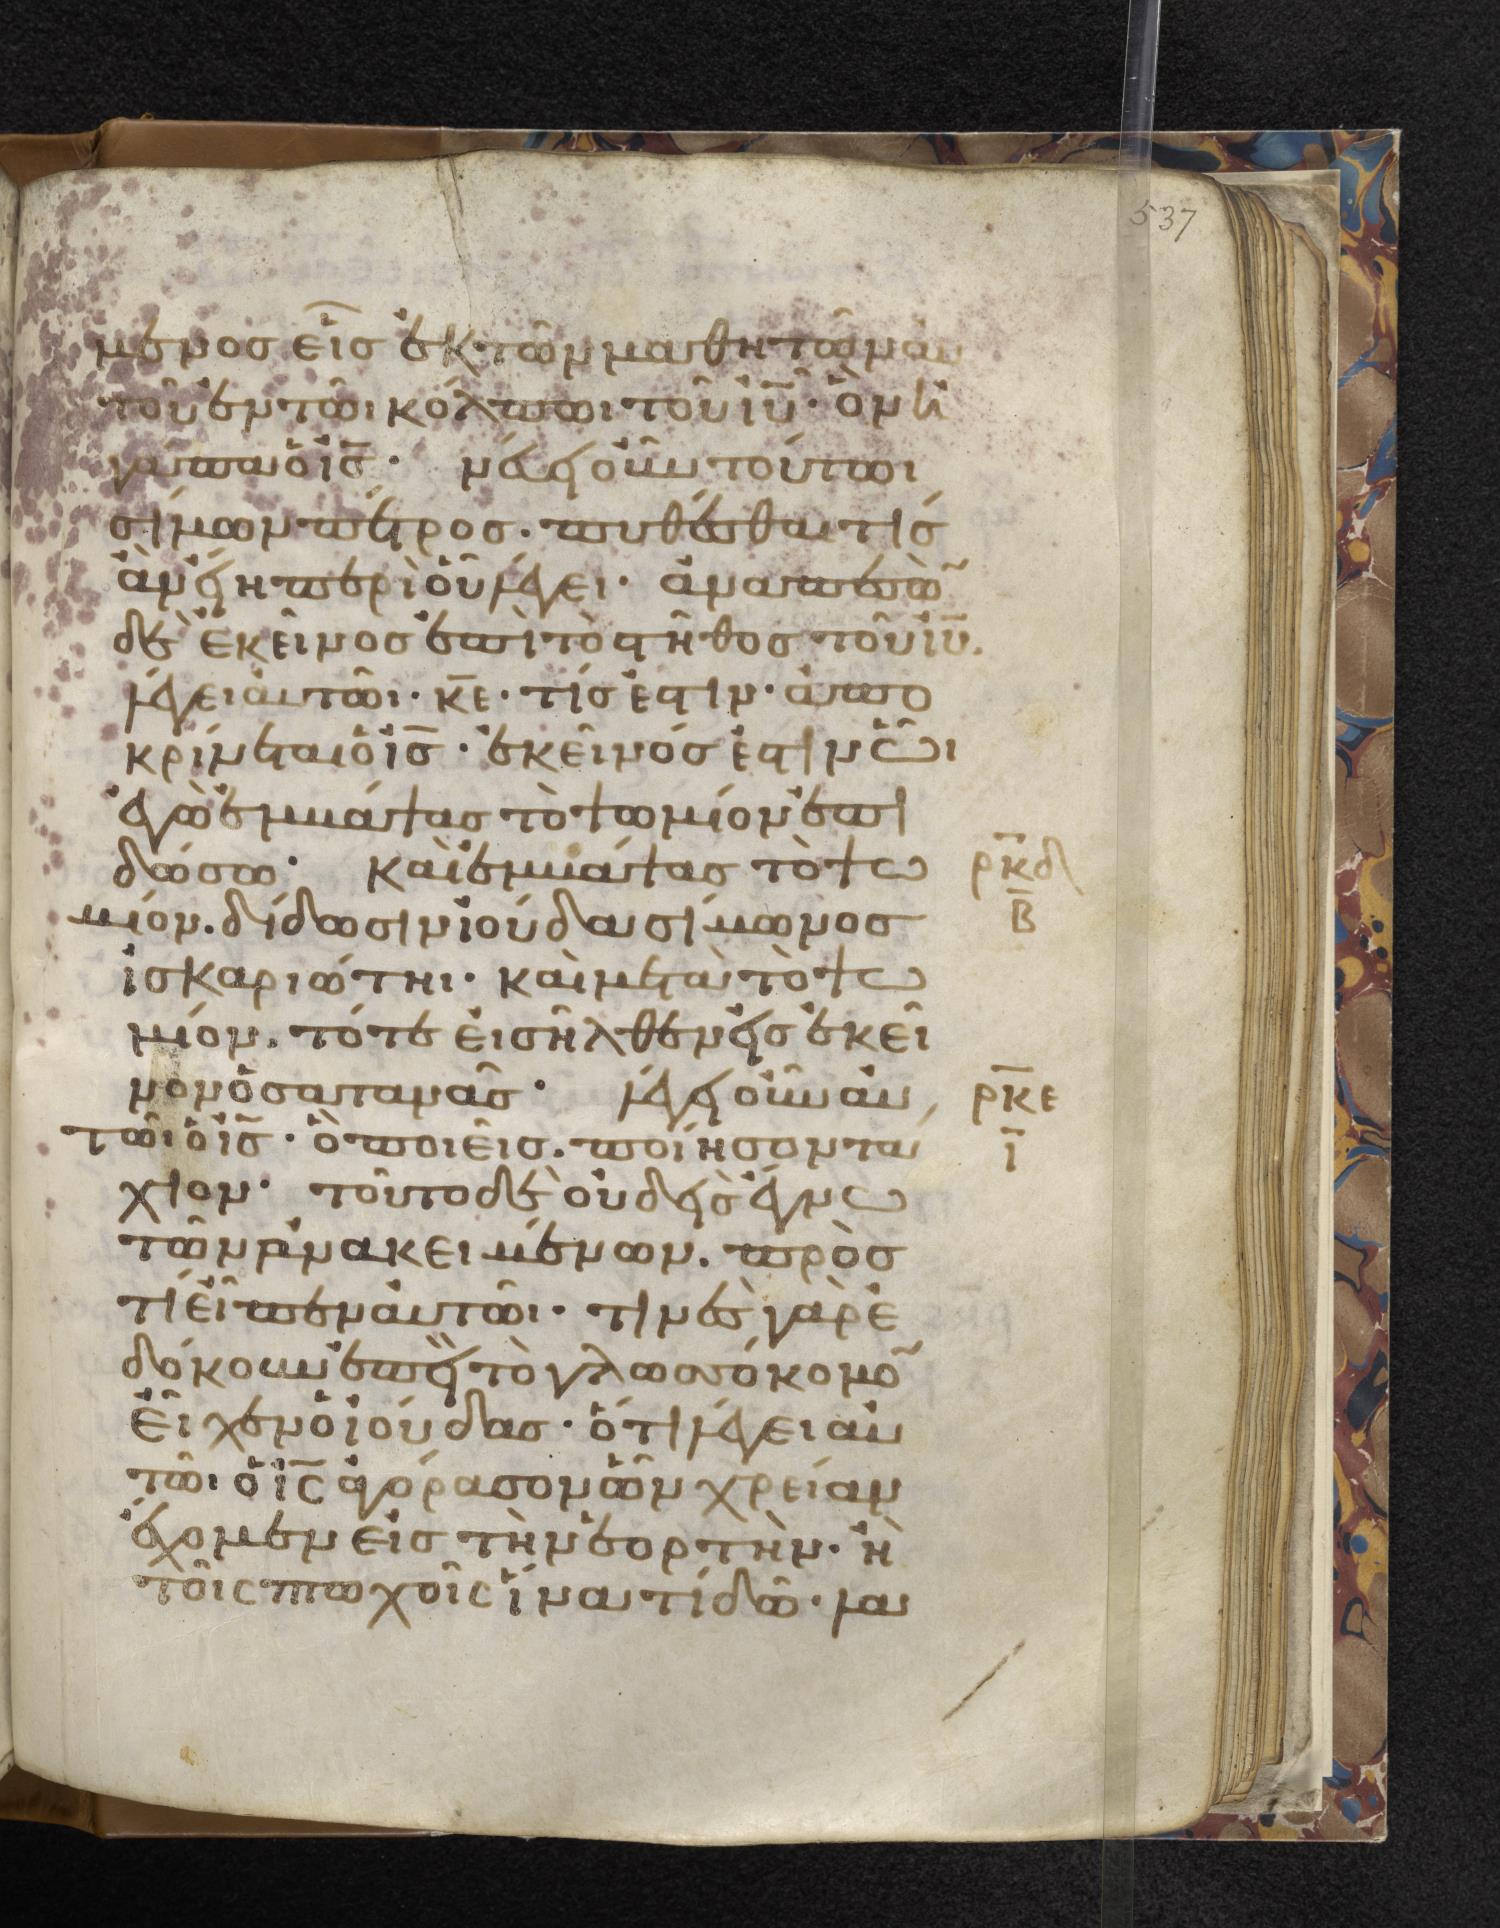 537
μενος εἷς ἐκ τῶν μαθητῶν αὐ
τοῦ ἐν τῶι κόλπωι τοῦ ἰῦ· ὃν ἠ
γάπα ὁ ἰς· νεύει οὖν τούτωι
σίμων πέτρος. πυθέσθαι τίς
ἂν εἴη περὶ οὗ λέγει· ἀναπεσὼ̃
δὲ ἐκεῖνος ἐπὶ τὸ στῆθος τοῦ ἰῦ.
λέγει αὐτῶι· κε· τίς ἐστιν· ἀπο
κρίνεται ὁ ἰς· ἐκεῖνός ἐστιν ὧι
ἐγὼ ἐμβάψας τὸ ψωμίον ἐπι
δώσω· καὶ ἐμβάψας τὸ ψω
μίον. δίδωσιν ἰούδα σίμωνος
ἰσκαριώτηι· καὶ μετὰ τὸ ψω
μίον. τότε εἰσῆλθεν εἰς ἐκεῖ
νον ὁ σατανᾶς· λέγει οὖν αὐ
τῶι ὁ ἰς· ὃ ποιεῖς. ποίησον τά
χιον· τοῦτο δὲ οὐδεὶς ἔγνω
τῶν ἀνακειμένων. πρὸς
τί εἶπεν αὐτῶι· τινὲς γὰρ ἐ
δόκουν ἐπεὶ τὸ γλωσσόκομο̃
εἶχεν ὁ ἰούδας· ὅτι λέγει αὐ
τῶι ὁ ἰς ἀγόρασον ὧν χρείαν
ἔχομεν εἰς τὴν ἑορτὴν· ἢ
τοῖς πτωχοῖς ἵνα τί δῶ· λα
ρκδ
β
ρκε
ι